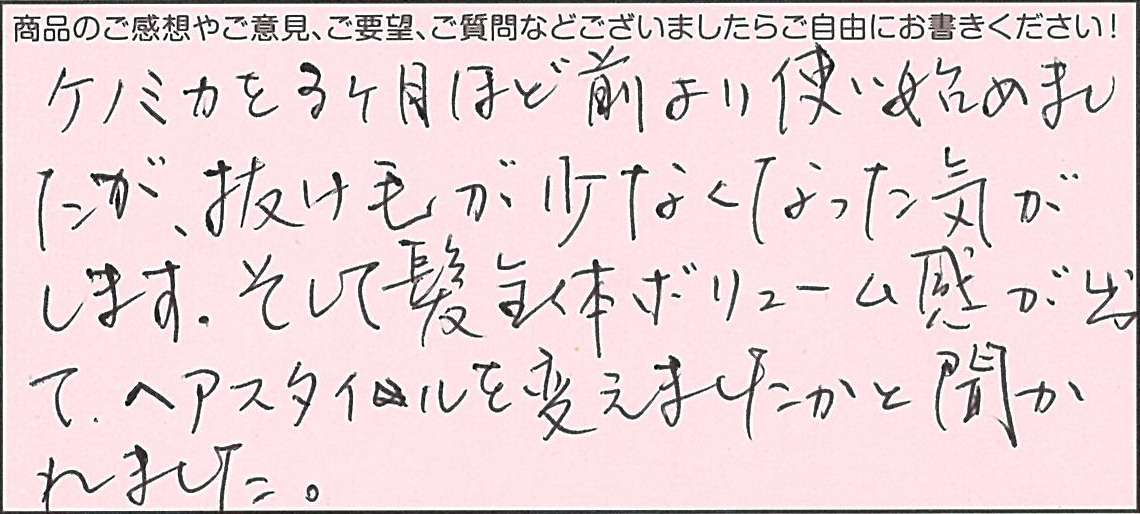 商品のご感想やご意見、ご要望、ご質問などございましたらご自由にお書きください！
ケノミカを3ヶ月ほど前より使い始めまし
たが、抜け毛が少なくなった気が
します。そして髪全体ボリューム感が出
て、ヘアスタイルを変えましたかと聞か
れました。